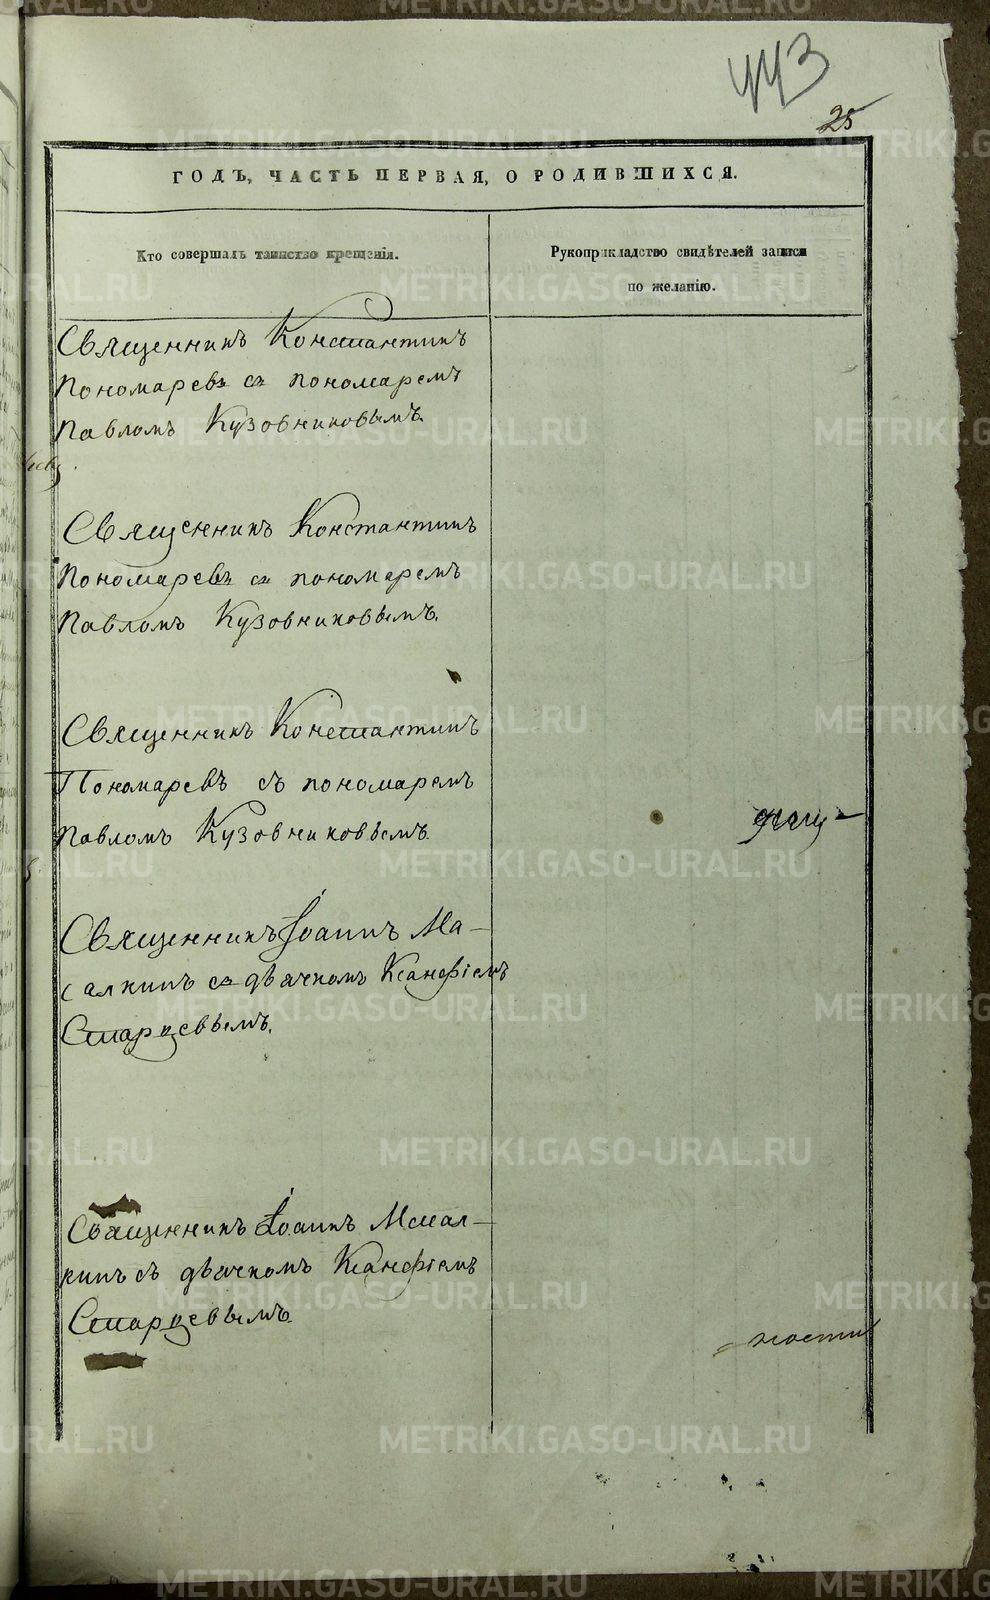 443
25
ГОДЪ, ЧАСТЬ ПЕРВАЯ, О РОДИВШИХСЯ.
Кто совершалъ таинство крещенія.
Рукоприкладство свидѣтелей записи
по желанію.
Священникъ Константинъ
Пономаревъ съ пономаремъ
Павломъ Кузовниковымъ.
Священникъ Константинъ
Пономаревъ съ пономаремъ
Павломъ Кузовниковымъ.
Священникъ Константинъ
Пономаревъ съ пономаремъ
Павломъ Кузовниковымъ.
Священникъ Іоаннъ Ма-
салкинъ съ дьячкомъ Ксанфіемъ
Старцевымъ.
Священникъ Іоаннъ Масал-
кинъ съ дьячкомъ Ксанфіемъ
Старцевымъ.
ности
METRIKI.GASO-URAL.RU